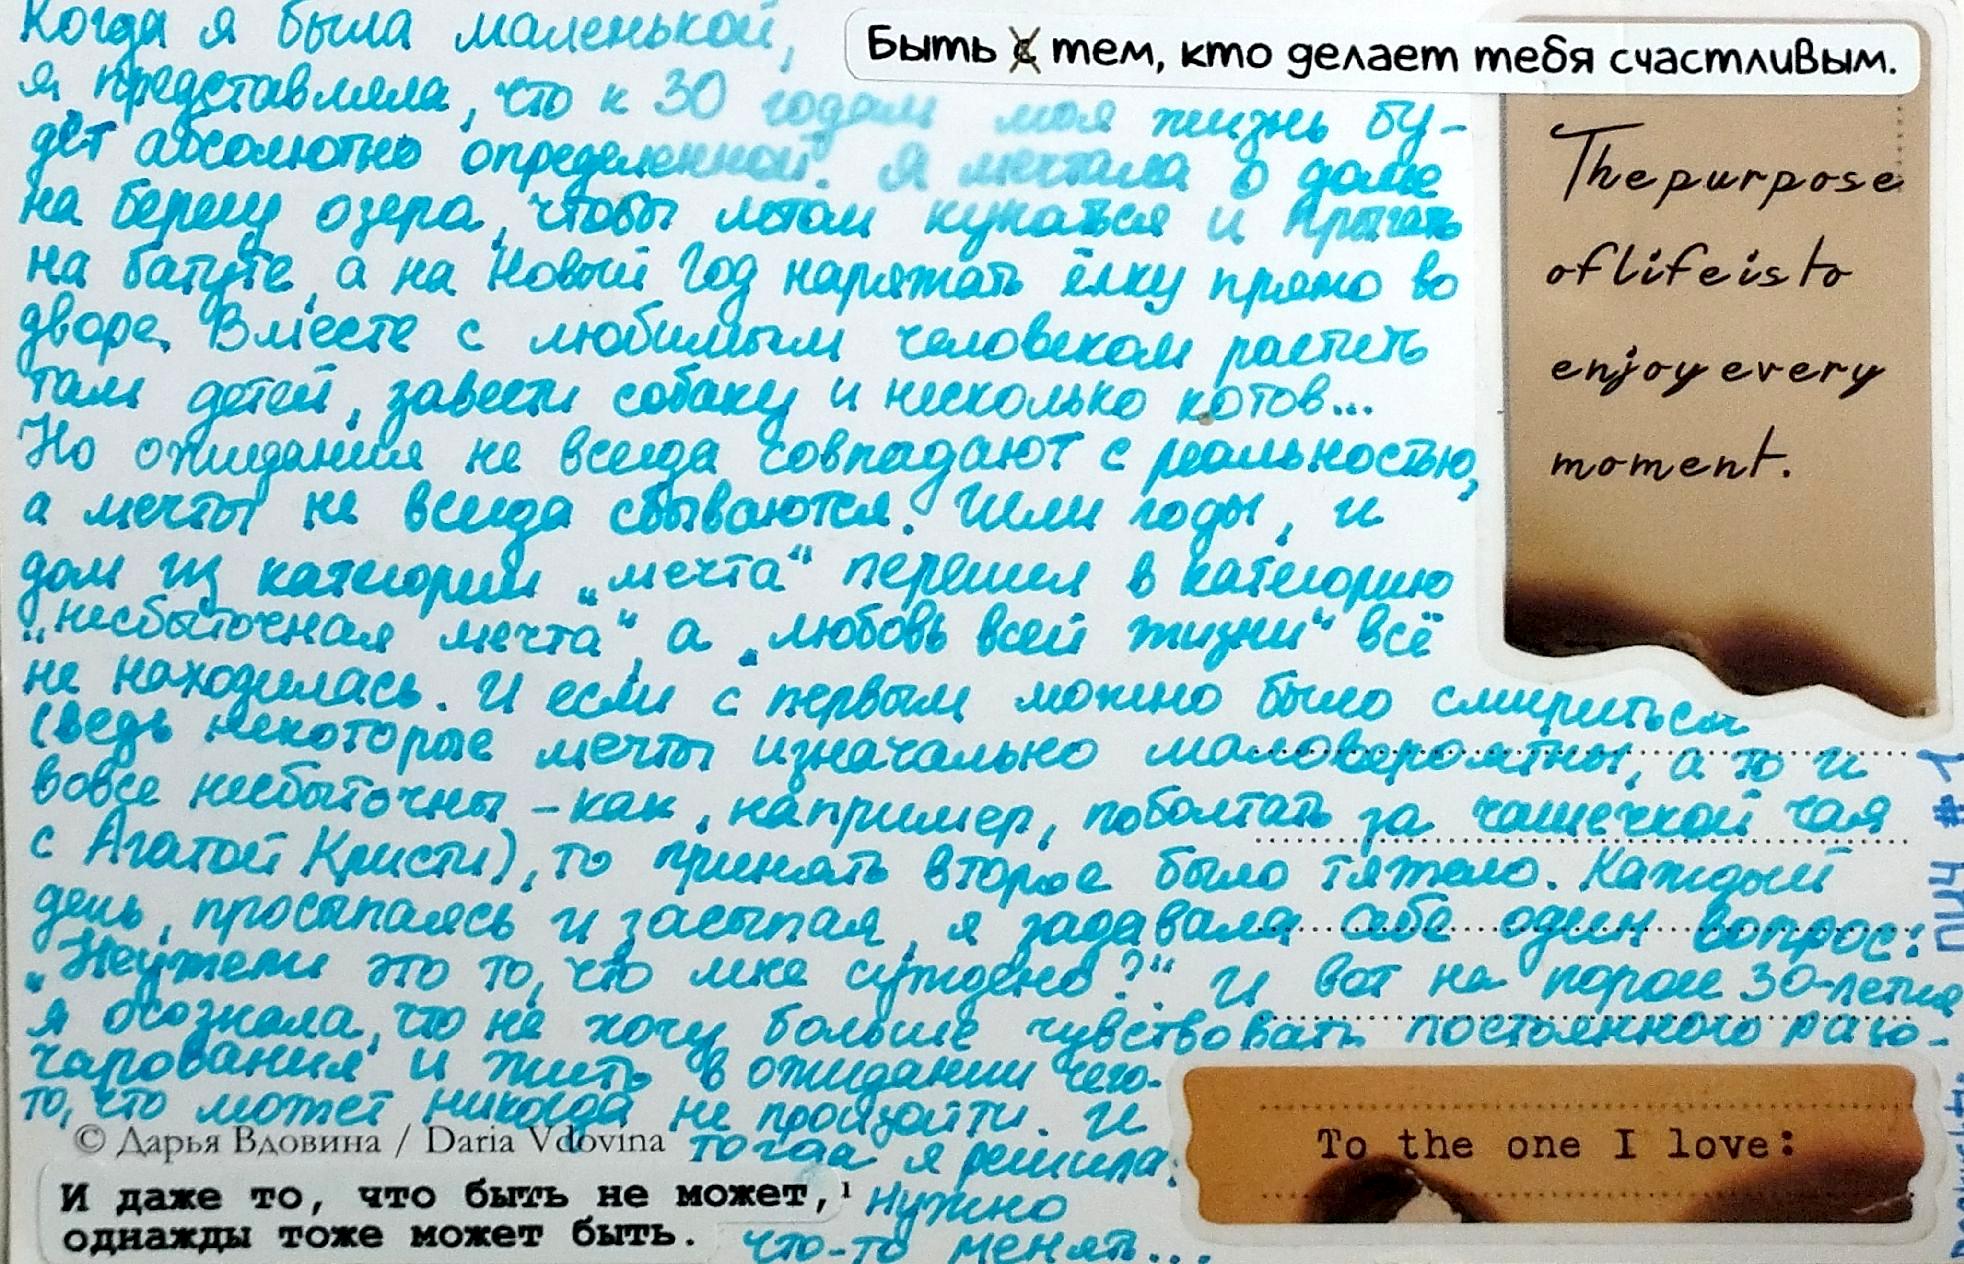 Когда я была маленькой,
Быть с тем, кто делает тебя счастливым.
я представляла, что к 30 годам моя жизнь бу-
дет абсолютно определенной. Я мечтала о доме
на берегу озера, чтобы летом купаться и прыгать
на батуте, а на Новый Год наряжать ёлку прямо во
дворе. Вместе с любимым человеком растить
там детей, завести собаку и несколько котов...
Но ожидания не всегда совпадают с реальностью,
а мечты не всегда сбываются. Шли годы, и
дом из категории „мечта“ перешел в категорию
„несбыточная мечта“, а „любовь всей жизни“ всё
не находилась. И если с первым можно было смириться
(ведь некоторые мечты изначально маловероятны, а то и
вовсе несбыточны - как, например, поболтать за чашечкой чая
с Агатой Кристи), то принять второе было тяжело. Каждый
день, просыпаясь и засыпая, я задавала себе один вопрос:
„Неужели это то, что мне суждено?“ И вот на пороге 30-летия
я осознала, что не хочу больше чувствовать постоянного разо-
чарования и жить в ожидании чего-
то, что может никогда не произойти. И
тогда я решила:
нужно
что-то менять...
The purpose
of life is to
enjoy every
moment.
To the one I love:
© Дарья Вдовина / Daria Vdovina
И даже то, что быть не может,¹
однажды тоже может быть.
ПКЧ #1